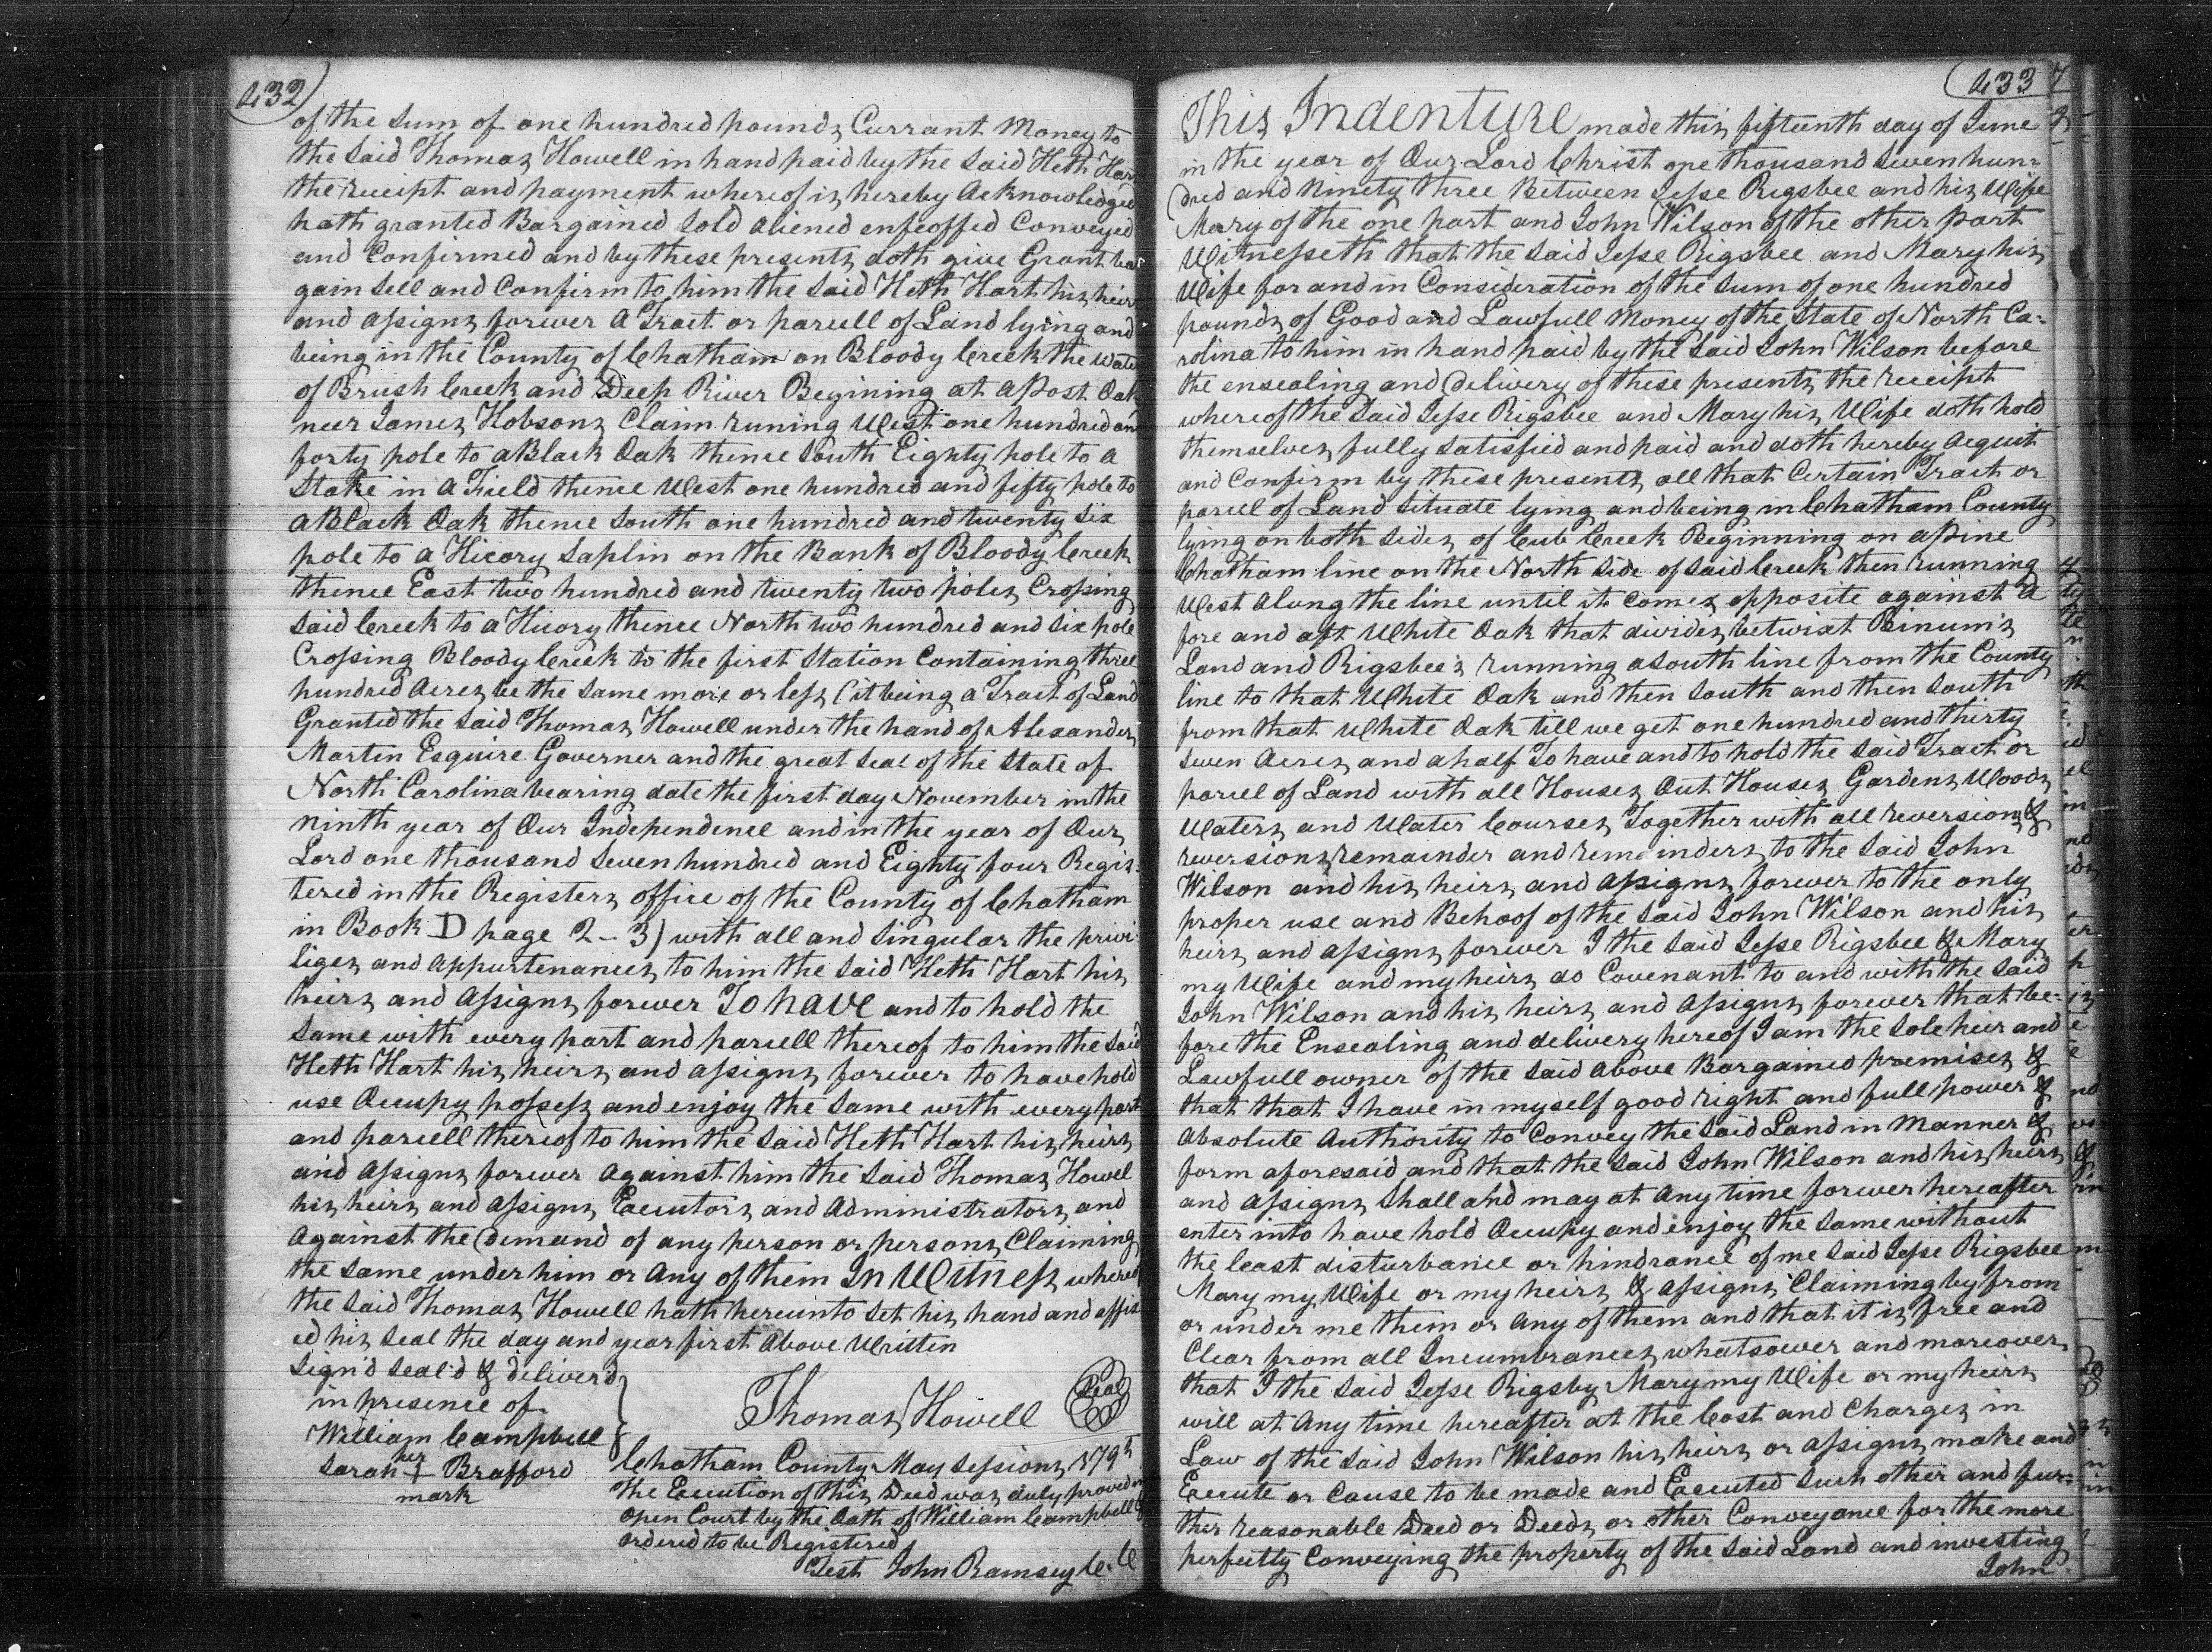 432
of the Sum of one hundred pounds Currant Money to
the Said Thomas Howell in hand paid by the Said Heth Hart
the receipt and payment whereof is hereby Acknowledged
hath granted Bargained Sold aliened enfeoffed Conveyed
and Confirmed and by these presents doth give Grant bar
gain Sell and Confirm to him the Said Heth Hart his heirs
and assigns forever A Tract or parcell of Land lying and
being in the County of Chatham on Bloody Creek the waters
of Brush Creek and Deep River Begining at a Post Oak
neer James Hobsons Claim runing West one hundred and
forty pole to a Black Oak thence South Eighty pole to a
Stake in a Field thence West one hundred and fifty pole to
a Black Oak thence South one hundred and twenty six
pole to a Hicory Saplin on the Bank of Bloody Creek
thence East two hundred and twenty two poles Crossing
Said Creek to a Hicory thence North two hundred and six pole
Crossing Bloody Creek to the first Station Containing three
hundred Acres be the Same more or less (it being a Tract of Land
Granted the Said Thomas Howell under the hand of Alexander
Martin Esquire Governer and the great Seal of the State of
North Carolina bearing date the first day November in the
Ninth year of Our Independence and in the year of Our
Lord one thousand Seven hundred and Eighty four Regis-
tered in the Registers office of the County of Chatham
in Book D page 2-3) with all and Singular the privi
liges and Appurtenances to him the Said Heth Hart his
heirs and Assigns forever To have and to hold the
Same with every part and parcell thereof to him the Said
Heth Hart his heirs and assigns forever to have hold
use Occupy possess and enjoy the Same with every part
and parcell thereof to him the Said Heth Hart his heirs
and Assigns forever Against him the Said Thomas Howel
his heirs and Assigns Executors and Administrators and
Against the demand of any person or persons Claiming
the Same under him or Any of them In Witness whereof
the Said Thomas Howell hath hereunto Set his hand and affix
ed his Seal the day and year first Above Written
Sign'd Seal'd & deliver'd
in presence of
William Campbell
Sarah her + Brafford
mark
Thomas Howell Seal
Chatham County May Sessions 179
The Execution of this Deed was duly proved in
Open Court by the Oath of William Campbell &
Ordered to be Registered
Test John Ramsey C.C
433
This Indenture made this fifteenth day of June
in the year of Our Lord Christ one thousand Seven hun-
dred and Ninety three Between Jesse Rigsbee and his Wife
Mary of the one part and John Wilson of the other part
Witnesseth that the Said Jesse Rigsbee and Mary his
Wife for and in Consideration of the Sum of one hundred
pounds of Good and Lawfull Money of the State of North Ca-
rolina to him in hand paid by the Said John Wilson before
the ensealing and delivery of these presents the receipt
whereof the Said Jesse Rigsbee and Mary his Wife doth hold
themselves fully Satisfied and paid and doth hereby Acquit
and Confirm by these presents all that Certain Tract or
parcel of Land Situate lying and being in Chatham County
lying on both Sides of Cub Creek Beginning on a Pine
Chatham line on the North Side of Said Creek then running
West Along the line until it Comes opposite against a
fore and aft White Oak that divides betwixt Binum's
Land and Rigsbee's running a South line from the County
line to that White Oak and then South and then South
from that White Oak till we get one hundred and thirty
Seven Acres and a half To have and to hold the Said Tract or
parcel of Land with all Houses Out Houses Gardens Woods
Waters and Water Courses Together with all reversion &
reversions remainder and remeinders to the Said John
Wilson and his heirs and Assigns forever to the only
proper use and Behoof of the Said John Wilson and his
heirs and assigns forever I the Said Jesse Rigsbee & Mary
my Wife and my heirs do Covenant to and with the Said
John Wilson and his heirs and Assigns forever that be-
fore the Ensealing and delivery hereof I am the Sole heir and
Lawfull owner of the Said Above Bargained premises &
that that I have in myself good right and full power &
Absolute Authority to Convey the Said Land in Manner &
form aforesaid and that the Said John Wilson and his heirs
and Assigns Shall and may at Any time forever hereafter
enter into have hold Occupy and enjoy the Same without
the least disturbance or hindrance of me Said Jesse Rigsbee
Mary my Wife or my heirs & Assigns Claiming by from
or under me them or Any of them and that it is free and
Clear from all Incumbrances whatsoever and moreover
that I the Said Jesse Rigsby Mary my Wife or my heirs
will at Any time hereafter at the Cost and Charges in
Law of the Said John Wilson his heirs or Assigns make and
Execute or Cause to be made and Executed Such other and fur-
ther reasonable Deed or Deeds or other Conveyance for the more
perfectly Conveying the property of the Said Land and investing
John